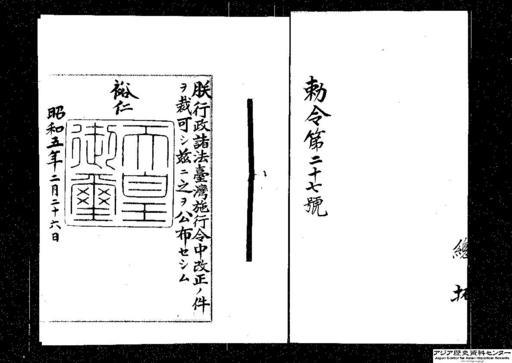 總
拓
勅令第二十七號
朕行政諸法臺灣施行令中改正ノ件
ヲ裁可シ茲ニ之ヲ公布セシム
裕仁
天皇
御璽
昭和五年二月二十六日
アジア歴史資料センター
Japan Center for Asian Historical Records